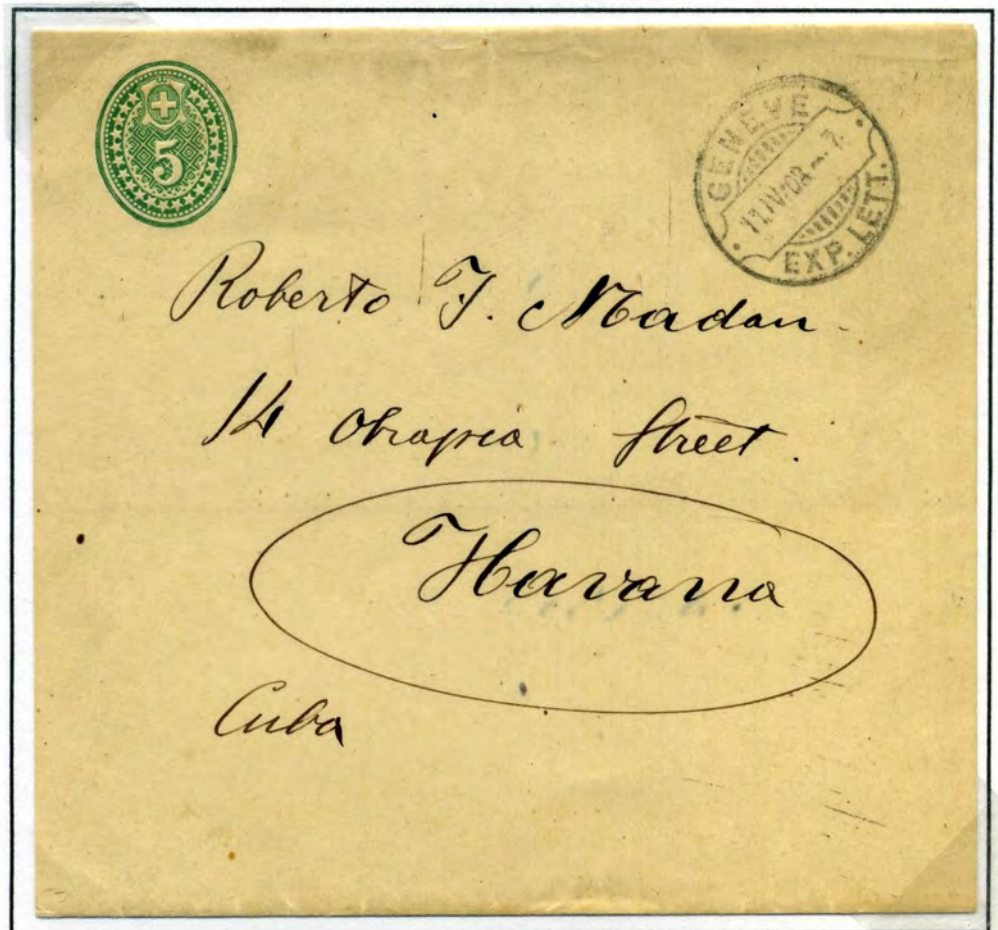 5
GENEVE
11.IV.08 - 7
EXP. LETT.
Roberto J. Madan
14 Obrapia Street.
Havana
Cuba